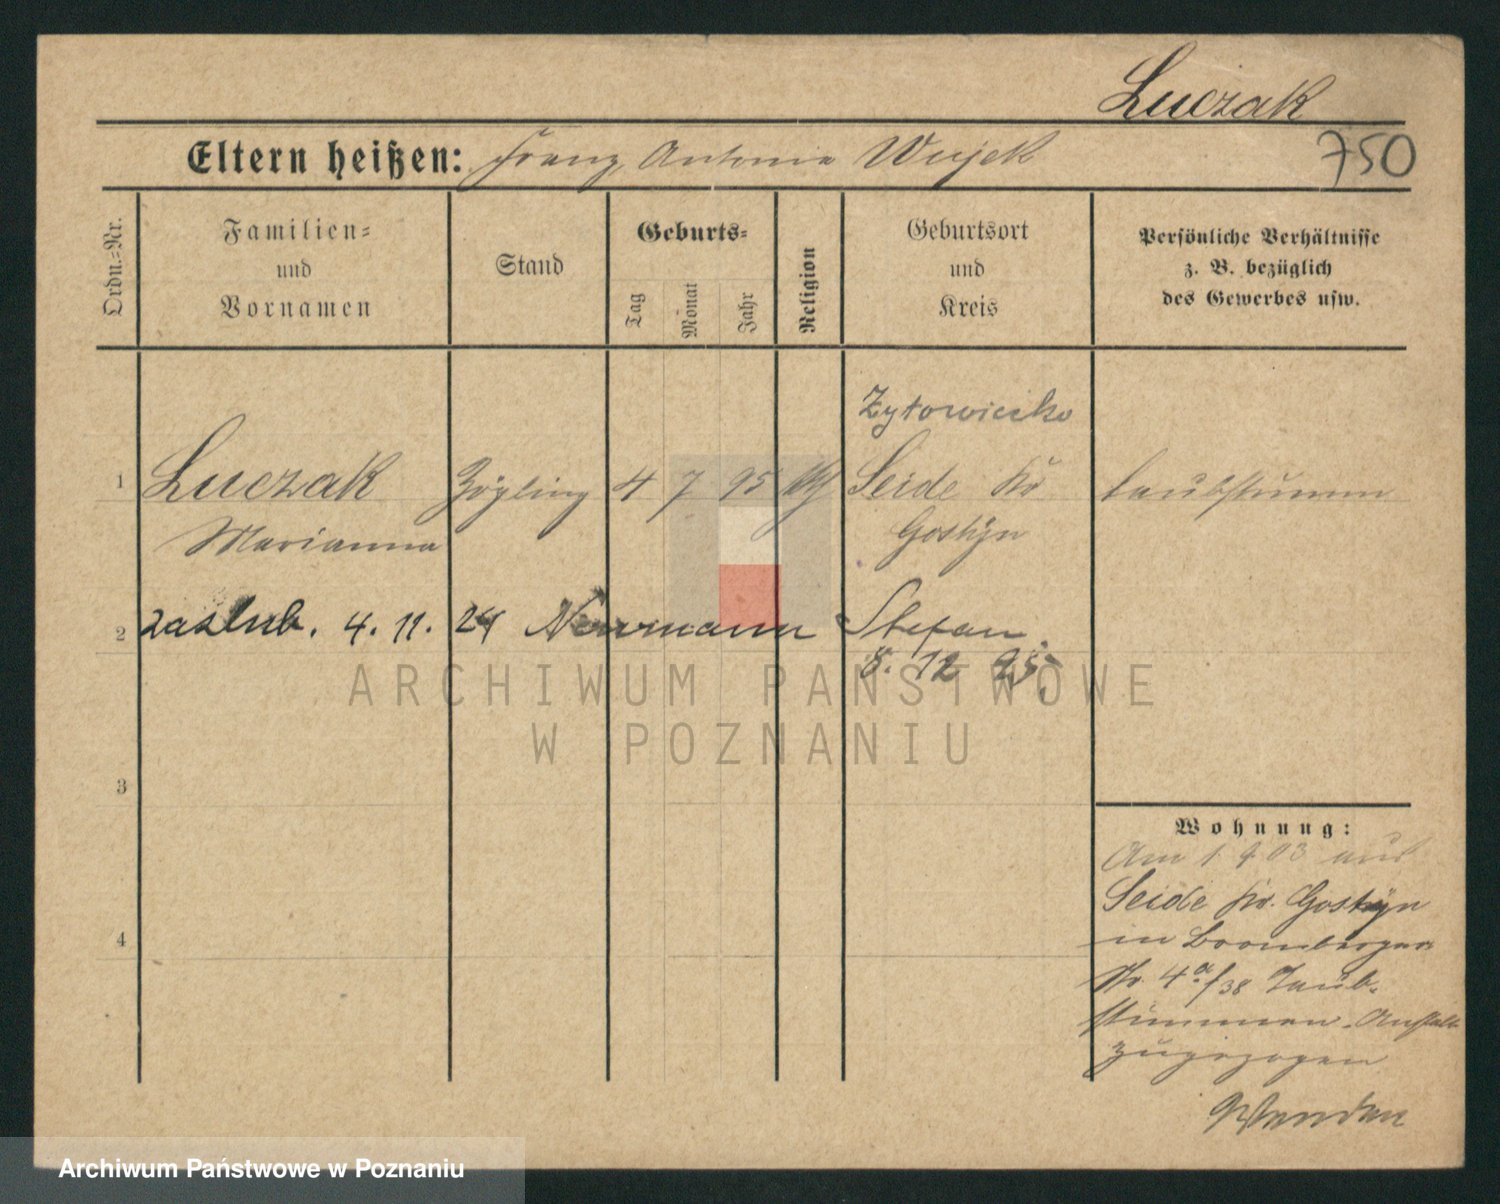 Luczak
Eltern heißen: Franz, Antonie Wujek
750
Ordn.-Nr.
Familien- und Vornamen
Stand
Geburts-
Tag
Monat
Jahr
Religion
Geburtsort und Kreis
Persönliche Verhältnisse
z. B. bezüglich
des Gewerbes usw.
Zytowiecko
1 Luczak Zögling 4 7 95 Seide Kr taubstumm
Marianna Gostÿn
2 zaslub. 4. 11. 24 Neumann Stefan
8. 12 95
3
Wohnung:
Am 1 9 03 aus
Seide Kr. Gostÿn
4
in Bromberger
Str 4a/38 Taub-
stummen-Anstalt
zugezogen
ARCHIWUM PAŃSTWOWE
W POZNANIU
Archiwum Państwowe w Poznaniu